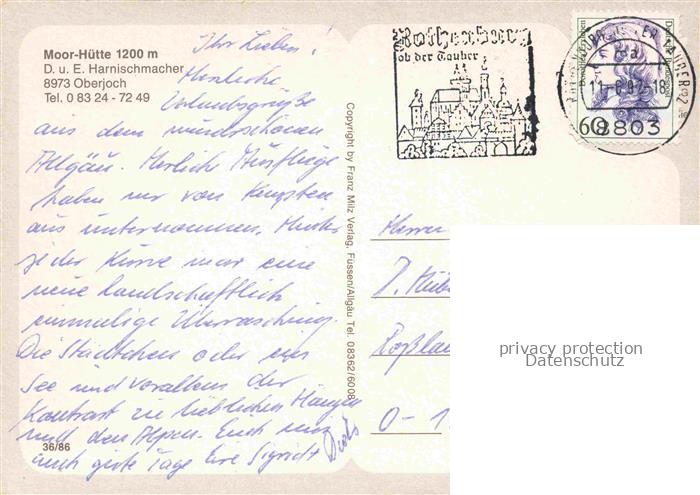 Moor-Hütte 1200 m
D. u. E. Harnischmacher
8973 Oberjoch
Tel. 0 83 24 - 72 49
Ihr Lieben!
Herzliche
Urlaubsgrüße
aus dem wunderschönen
Allgäu. Herrliche Ausflüge
haben wir von Kempten
aus unternommen. Hinter
jeder Kurve war eine
neue landschaftlich
einmalige Überraschung.
Die Städtchen oder
See und vor allem der
Kontrast zu lieblichen Hängen
und den Alpen. Euch
auch gute Tage Eure Sigrid
36/86
Copyright by Franz Milz Verlag, Füssen/Allgäu Tel. 08362/6008
Rothenburg
ob der Tauber
Deutsche Bundespost
60
8803
Herrn
0-1
privacy protection
Datenschutz